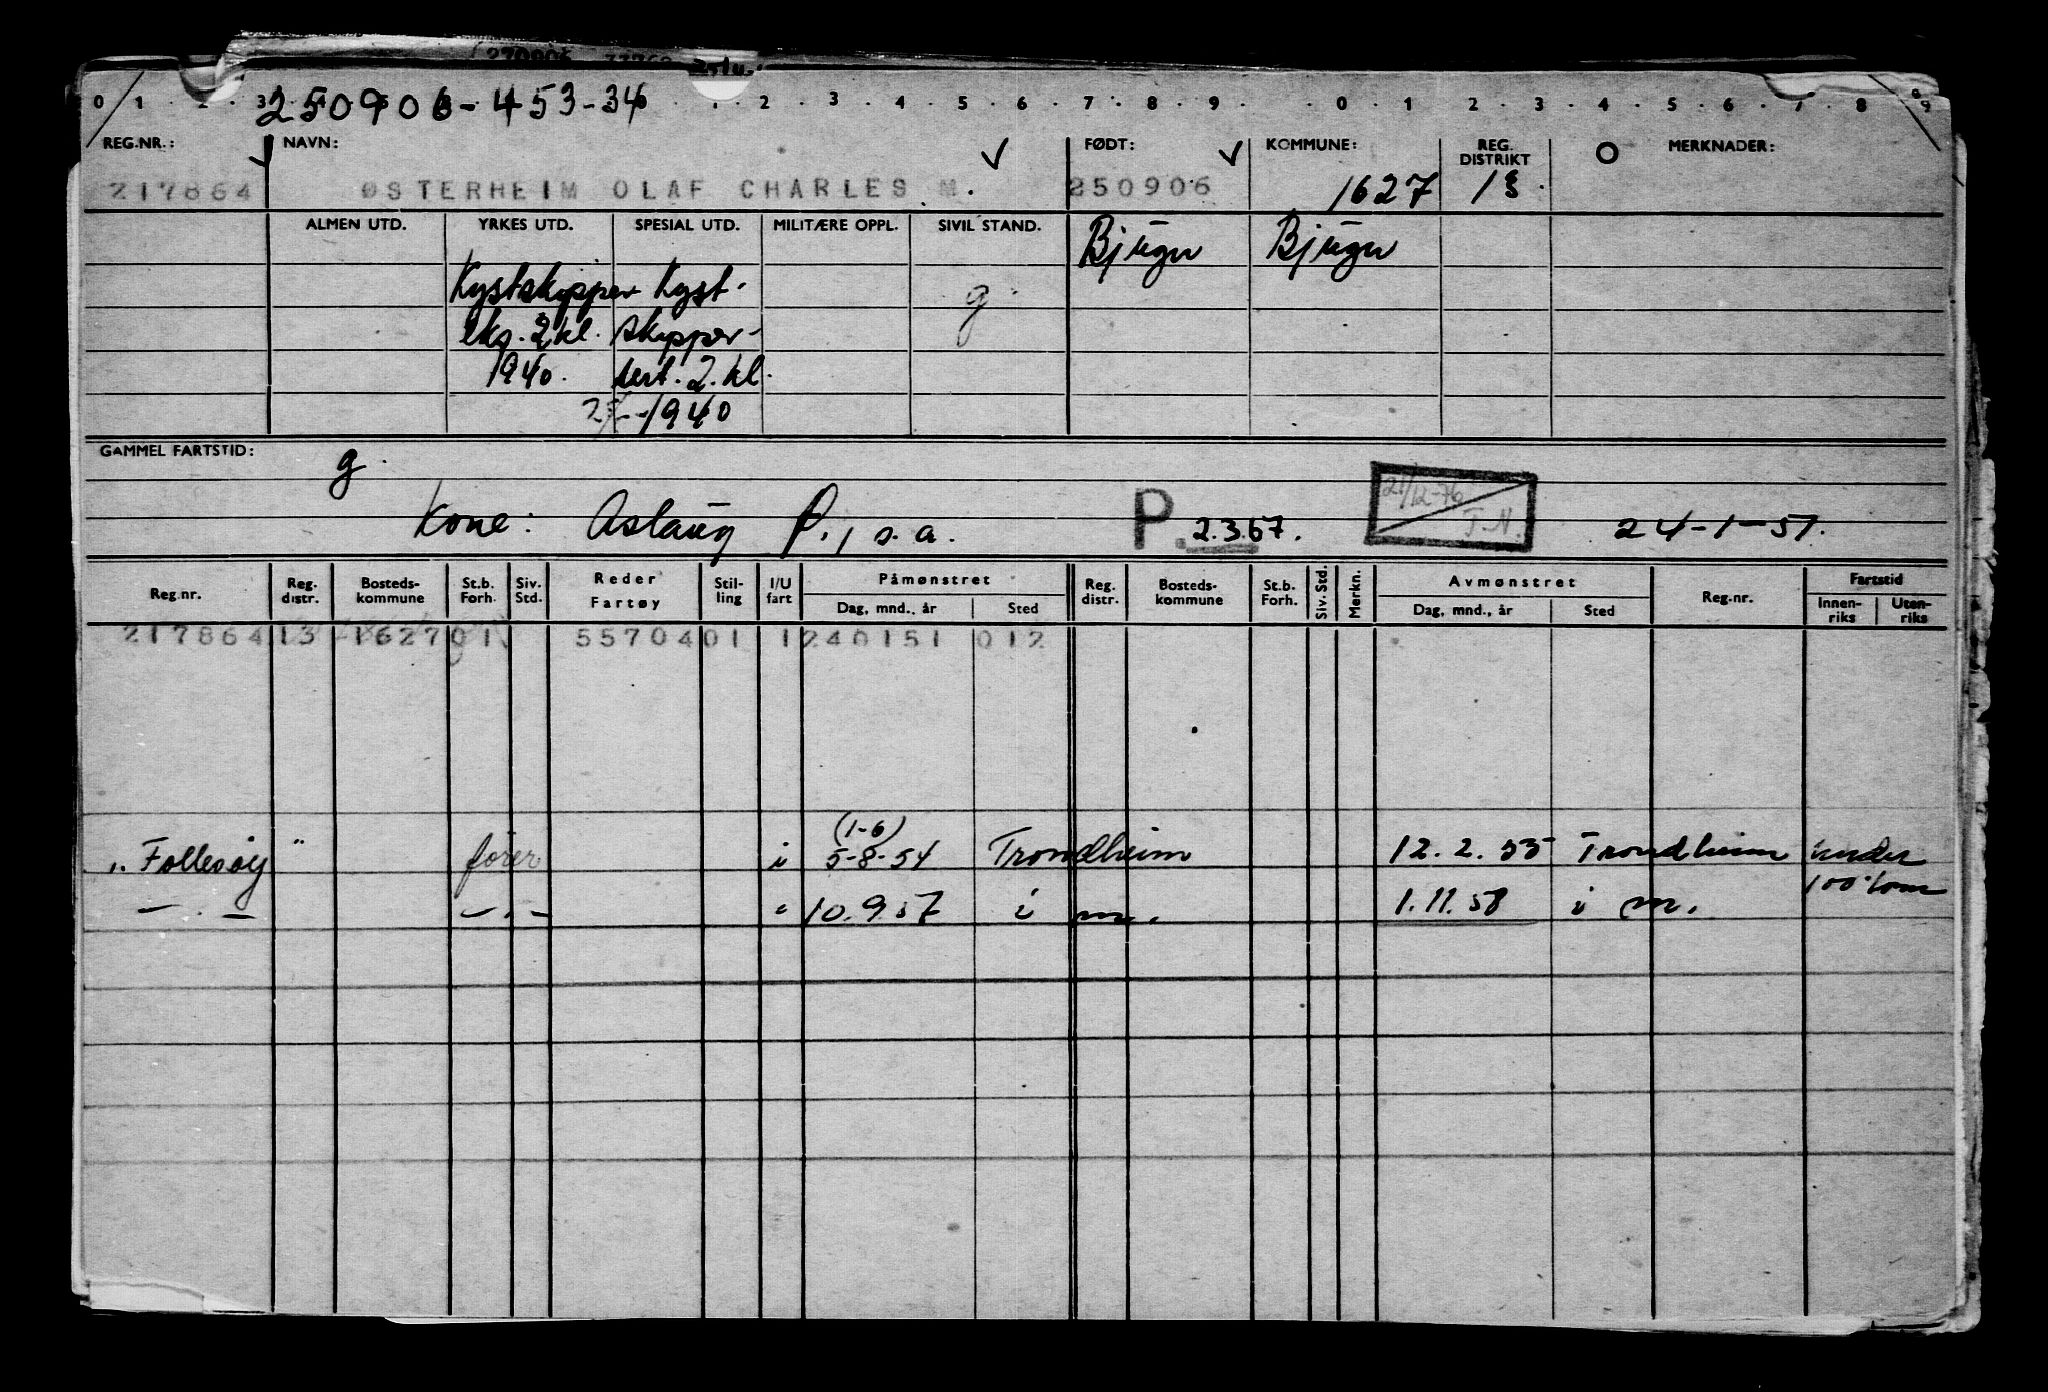 0 1 2 3 250906-453-34 1 2 3 4 5 6 7 8 9 0 1 2 3 4 5 6 7 8 9
REG.NR.: NAVN: FØDT: KOMMUNE: REG. DISTRIKT MERKNADER:
217864 ØSTERHEIM OLAF CHARLES M. 250906 1627 13
ALMEN UTD. YRKES UTD. SPESIAL UTD. MILITÆRE OPPL. SIVIL STAND. Bjugn Bjugn
Kystskipper Kyst- g
eks. 2 kl. skipper-
1940. sert. 2. kl.
1940
GAMMEL FARTSTID: g.
Kone: Aslaug P., s. a. P. 2.3.67. 21/12-76 T.N. 24-1-51.
Reg.nr. Reg. distr. Bosteds-kommune St.b. Forh. Siv. Std. Reder Fartøy Stil-ling I/U fart Påmønstret Reg. distr. Bosteds-kommune St.b. Forh. Siv. Std. Merkn. Avmønstret Reg.nr. Fartstid
Dag, mnd., år Sted Dag, mnd., år Sted Innen-riks Uten-riks
217864 13 1627 01 55704 01 1 240151 012
(1-6)
"Follesøy" fører i 5-8-54 Trondheim 12.2.55 Trondheim under
100 tonn
— . — — . — " 10.9.57 i m. 1.11.58 i m.